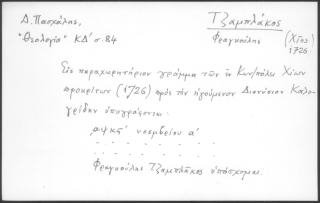 Δ. Πασχάλης,
"Θεολογία" ΚΔ' σ. 84
Τζαμπλάκος
Φραγκούλης (Χῖος)
1726
Εἰς παραχωρητήριον γράμμα τῶν ἐν Κων/πόλει Χίων
προκρίτων (1726) πρὸς τὸν ἡγούμενον Διονύσιον Καλο-
γρίδην ὑπογράφεται:
αψκϛ' νοεμβρίου α'
. . . . . . . . .
. . . . . . . . .
Φραγκούλης Τζαμπλᾶκος ὑπόσχομαι.